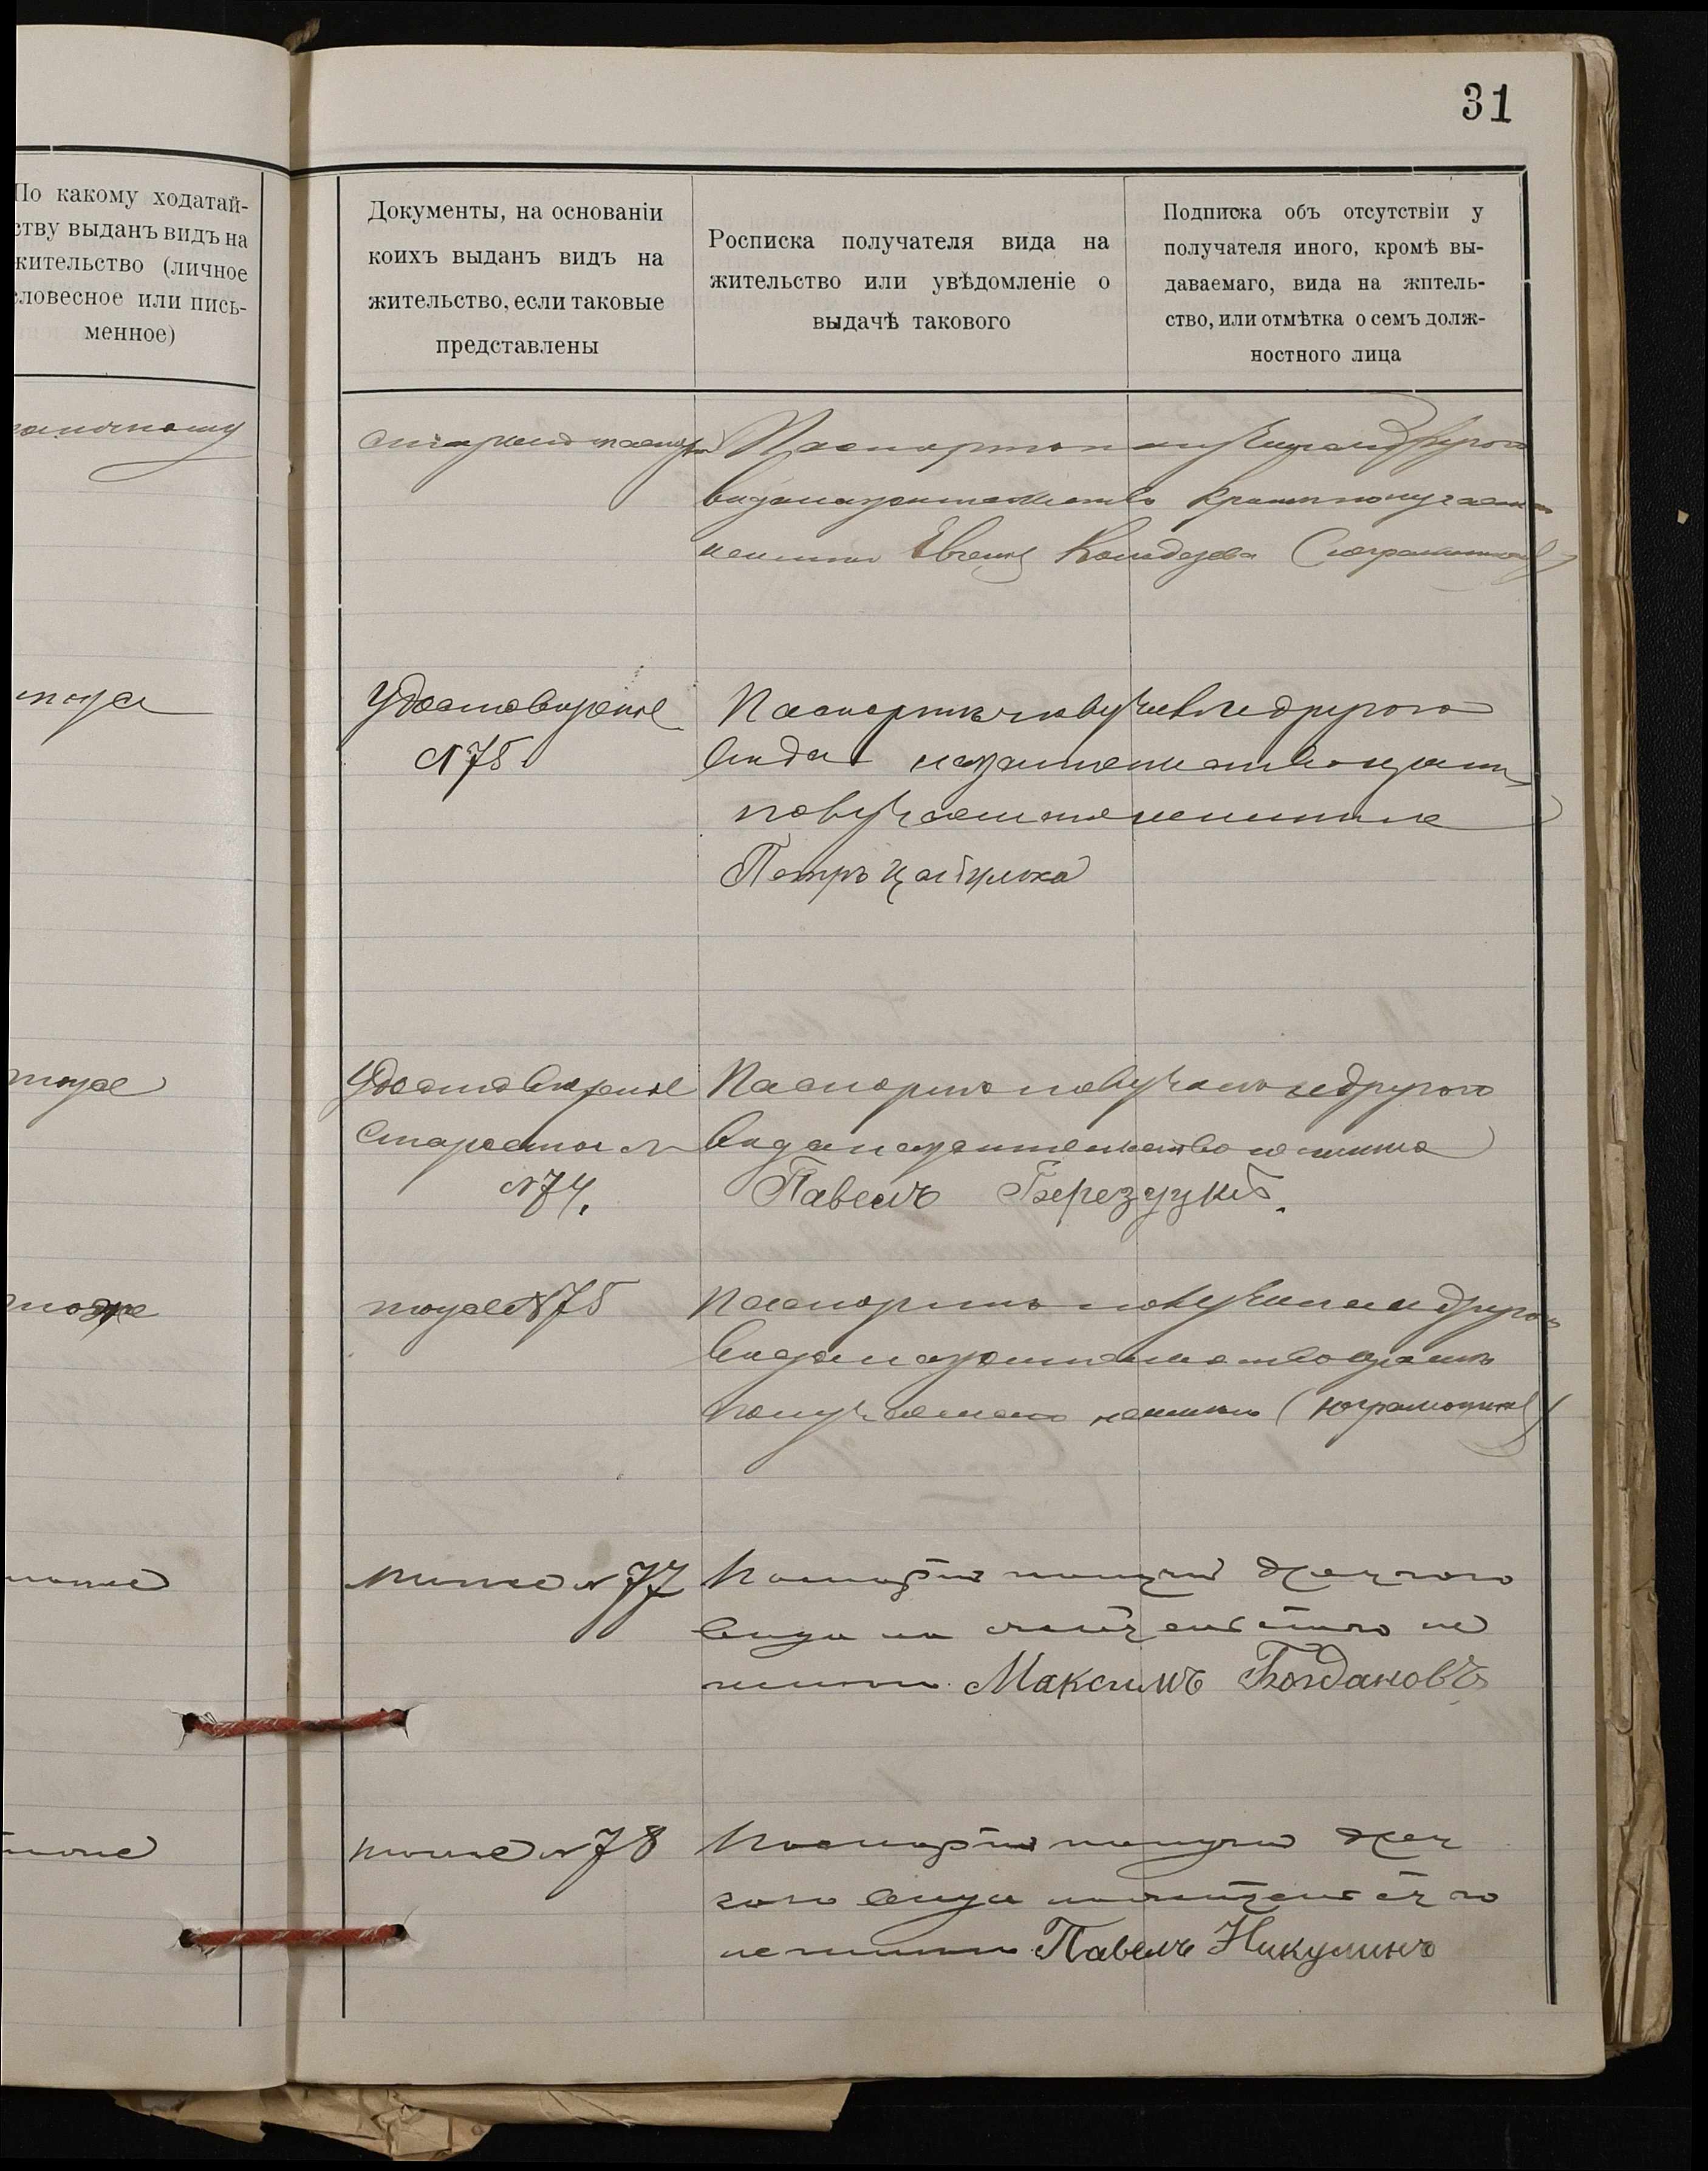 31
По какому ходатай-
ству выданъ видъ на
жительство (личное
словесное или пись-
менное)
Документы, на основаніи
коихъ выданъ видъ на
жительство, если таковые
представлены
Росписка получателя вида на
жительство или увѣдомленіе о
выдачѣ такового
Подписка объ отсутствіи у
получателя иного, кромѣ вы-
даваемаго, вида на жптель-
ство, или отмѣтка о семъ долж-
ностного лица
Паспортъ получилъ другого
вида на жительство кромѣ получаем
неимѣю
тоже
Удостовѣреніе
N 75
Паспортъ получилъ другого
вида на жительство кромѣ
получаемаго неимѣю
Петръ
тоже
Удостовѣреніе
Старосты
N 74.
Паспортъ получилъ другого
вида на жительство неимѣю
Павелъ Березуцкій.
тоже
тоже N 75
Паспортъ получилъ другого
вида на жительство кромѣ
получаемаго неимѣю (неграмотный)
тоже
тоже N 77
Паспортъ получилъ другого
вида на жительство не
имѣю Максимъ Богдановъ
тоже
тоже N 78
Паспортъ получилъ дру
гого вида на жительство
не имѣю Павелъ Никулинъ